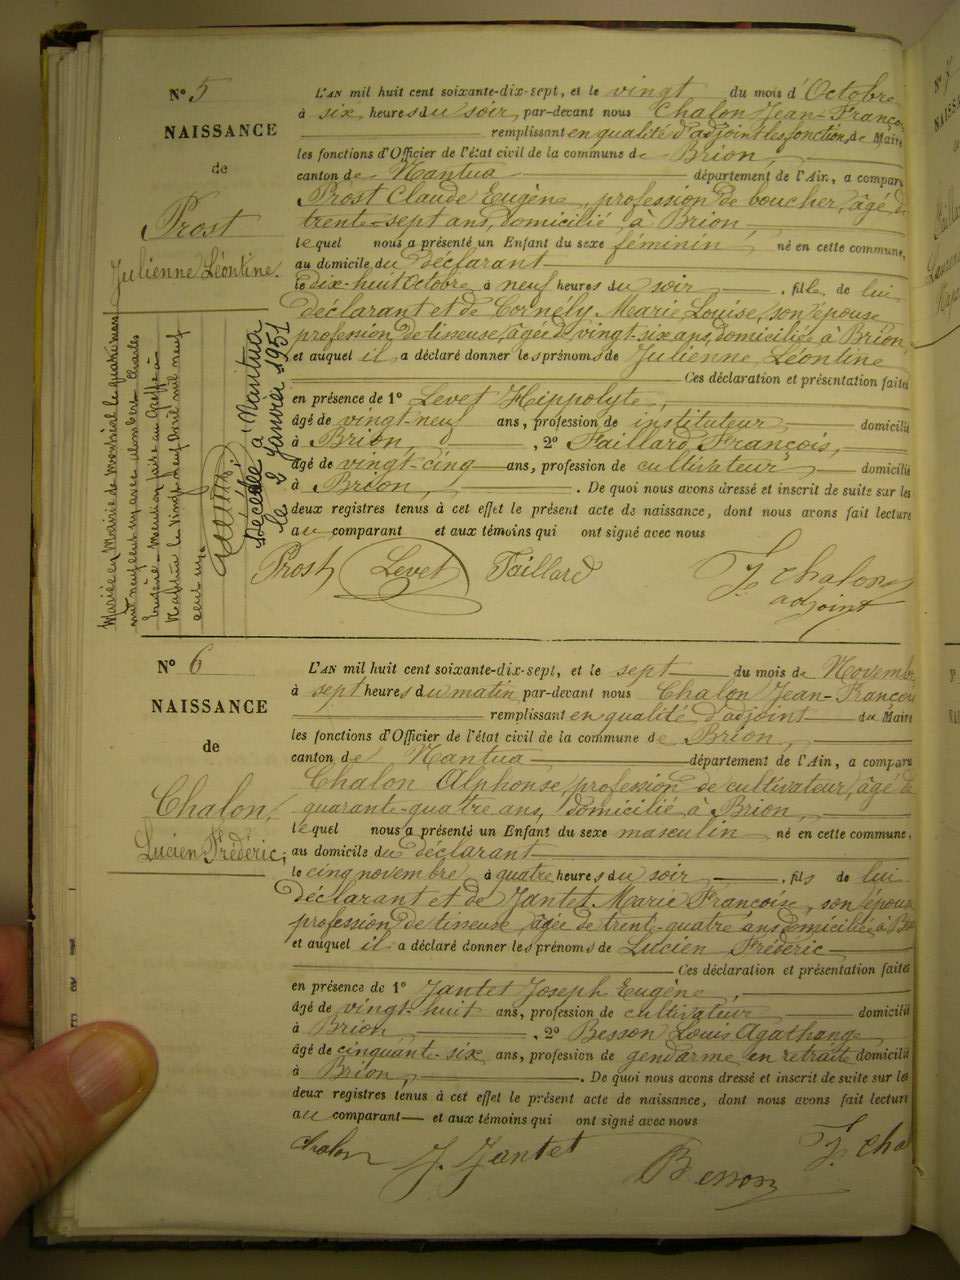 N° 5
NAISSANCE
de
Prost
Julienne Léontine.
L'AN mil huit cent soixante-dix-sept, et le vingt du mois d'Octobre
à six heures du soir, par-devant nous Chalon Jean-Franço
remplissant en qualité d'adjoint les fonctions de Maire
les fonctions d'Officier de l'état civil de la commune de Brion,
canton de Nantua département de l'Ain, a compar
Prost Claude Eugène, profession de boucher, âgé de
trente-sept ans, domicilié à Brion,
lequel nous a présenté un Enfant du sexe féminin, né en cette commune,
au domicile du déclarant
le dix-huit Octobre à neuf heures du soir, fille de lui
déclarant et de Cornély Marie Louise, son épouse
profession de tisseuse, âgée de vingt-six ans, domiciliée à Brion,
et auquel il a déclaré donner les prénoms de Julienne Léontine
Ces déclaration et présentation faites
en présence de 1° Levet Hippolyte,
âgé de vingt-neuf ans, profession de instituteur, domicilié
à Brion, , 2° Taillard François,
âgé de vingt-cinq ans, profession de cultivateur, domicilié
à Brion, . De quoi nous avons dressé et inscrit de suite sur les
deux registres tenus à cet effet le présent acte de naissance, dont nous avons fait lecture
au comparant et aux témoins qui ont signé avec nous
Prost Levet Taillard J. Chalon
adjoint
Mariée en Mairie de Montréal le quatre mars
mil neuf cent un avec Charles
Eugène. Mention faite au Greffe à
Nantua le Vingt neuf Avril mil neuf
cent un.
Décédée à Nantua
le 9 Janvier 1951
N° 6
NAISSANCE
de
Chalon,
Lucien Frédéric,
L'AN mil huit cent soixante-dix-sept, et le sept du mois de Novemb
à sept heures du matin par-devant nous Chalon Jean-Françoi
remplissant en qualité d'adjoint du Maire
les fonctions d'Officier de l'état civil de la commune de Brion,
canton de Nantua département de l'Ain, a compar
Chalon Alphonse, profession de cultivateur, âgé de
quarante-quatre ans, domicilié à Brion,
lequel nous a présenté un Enfant du sexe masculin né en cette commune,
au domicile du déclarant
le cinq novembre, à quatre heures du soir . fils de lui
déclarant et de Jantet Marie Françoise, son épous
profession de tisseuse, âgée de trente-quatre ans, domiciliée à Br
et auquel il a déclaré donner les prénoms de Lucien Frédéric
Ces déclaration et présentation faites
en présence de 1° Jantet Joseph Eugène,
âgé de vingt-huit ans, profession de cultivateur domicilié
à Brion , 2° Besson Louis Agathange
âgé de cinquante-six ans, profession de gendarme en retraite domicilié
à Brion, . De quoi nous avons dressé et inscrit de suite sur les
deux registres tenus à cet effet le présent acte de naissance, dont nous avons fait lectur
au comparant et aux témoins qui ont signé avec nous
Chalon J. Jantet Besson J. Cha